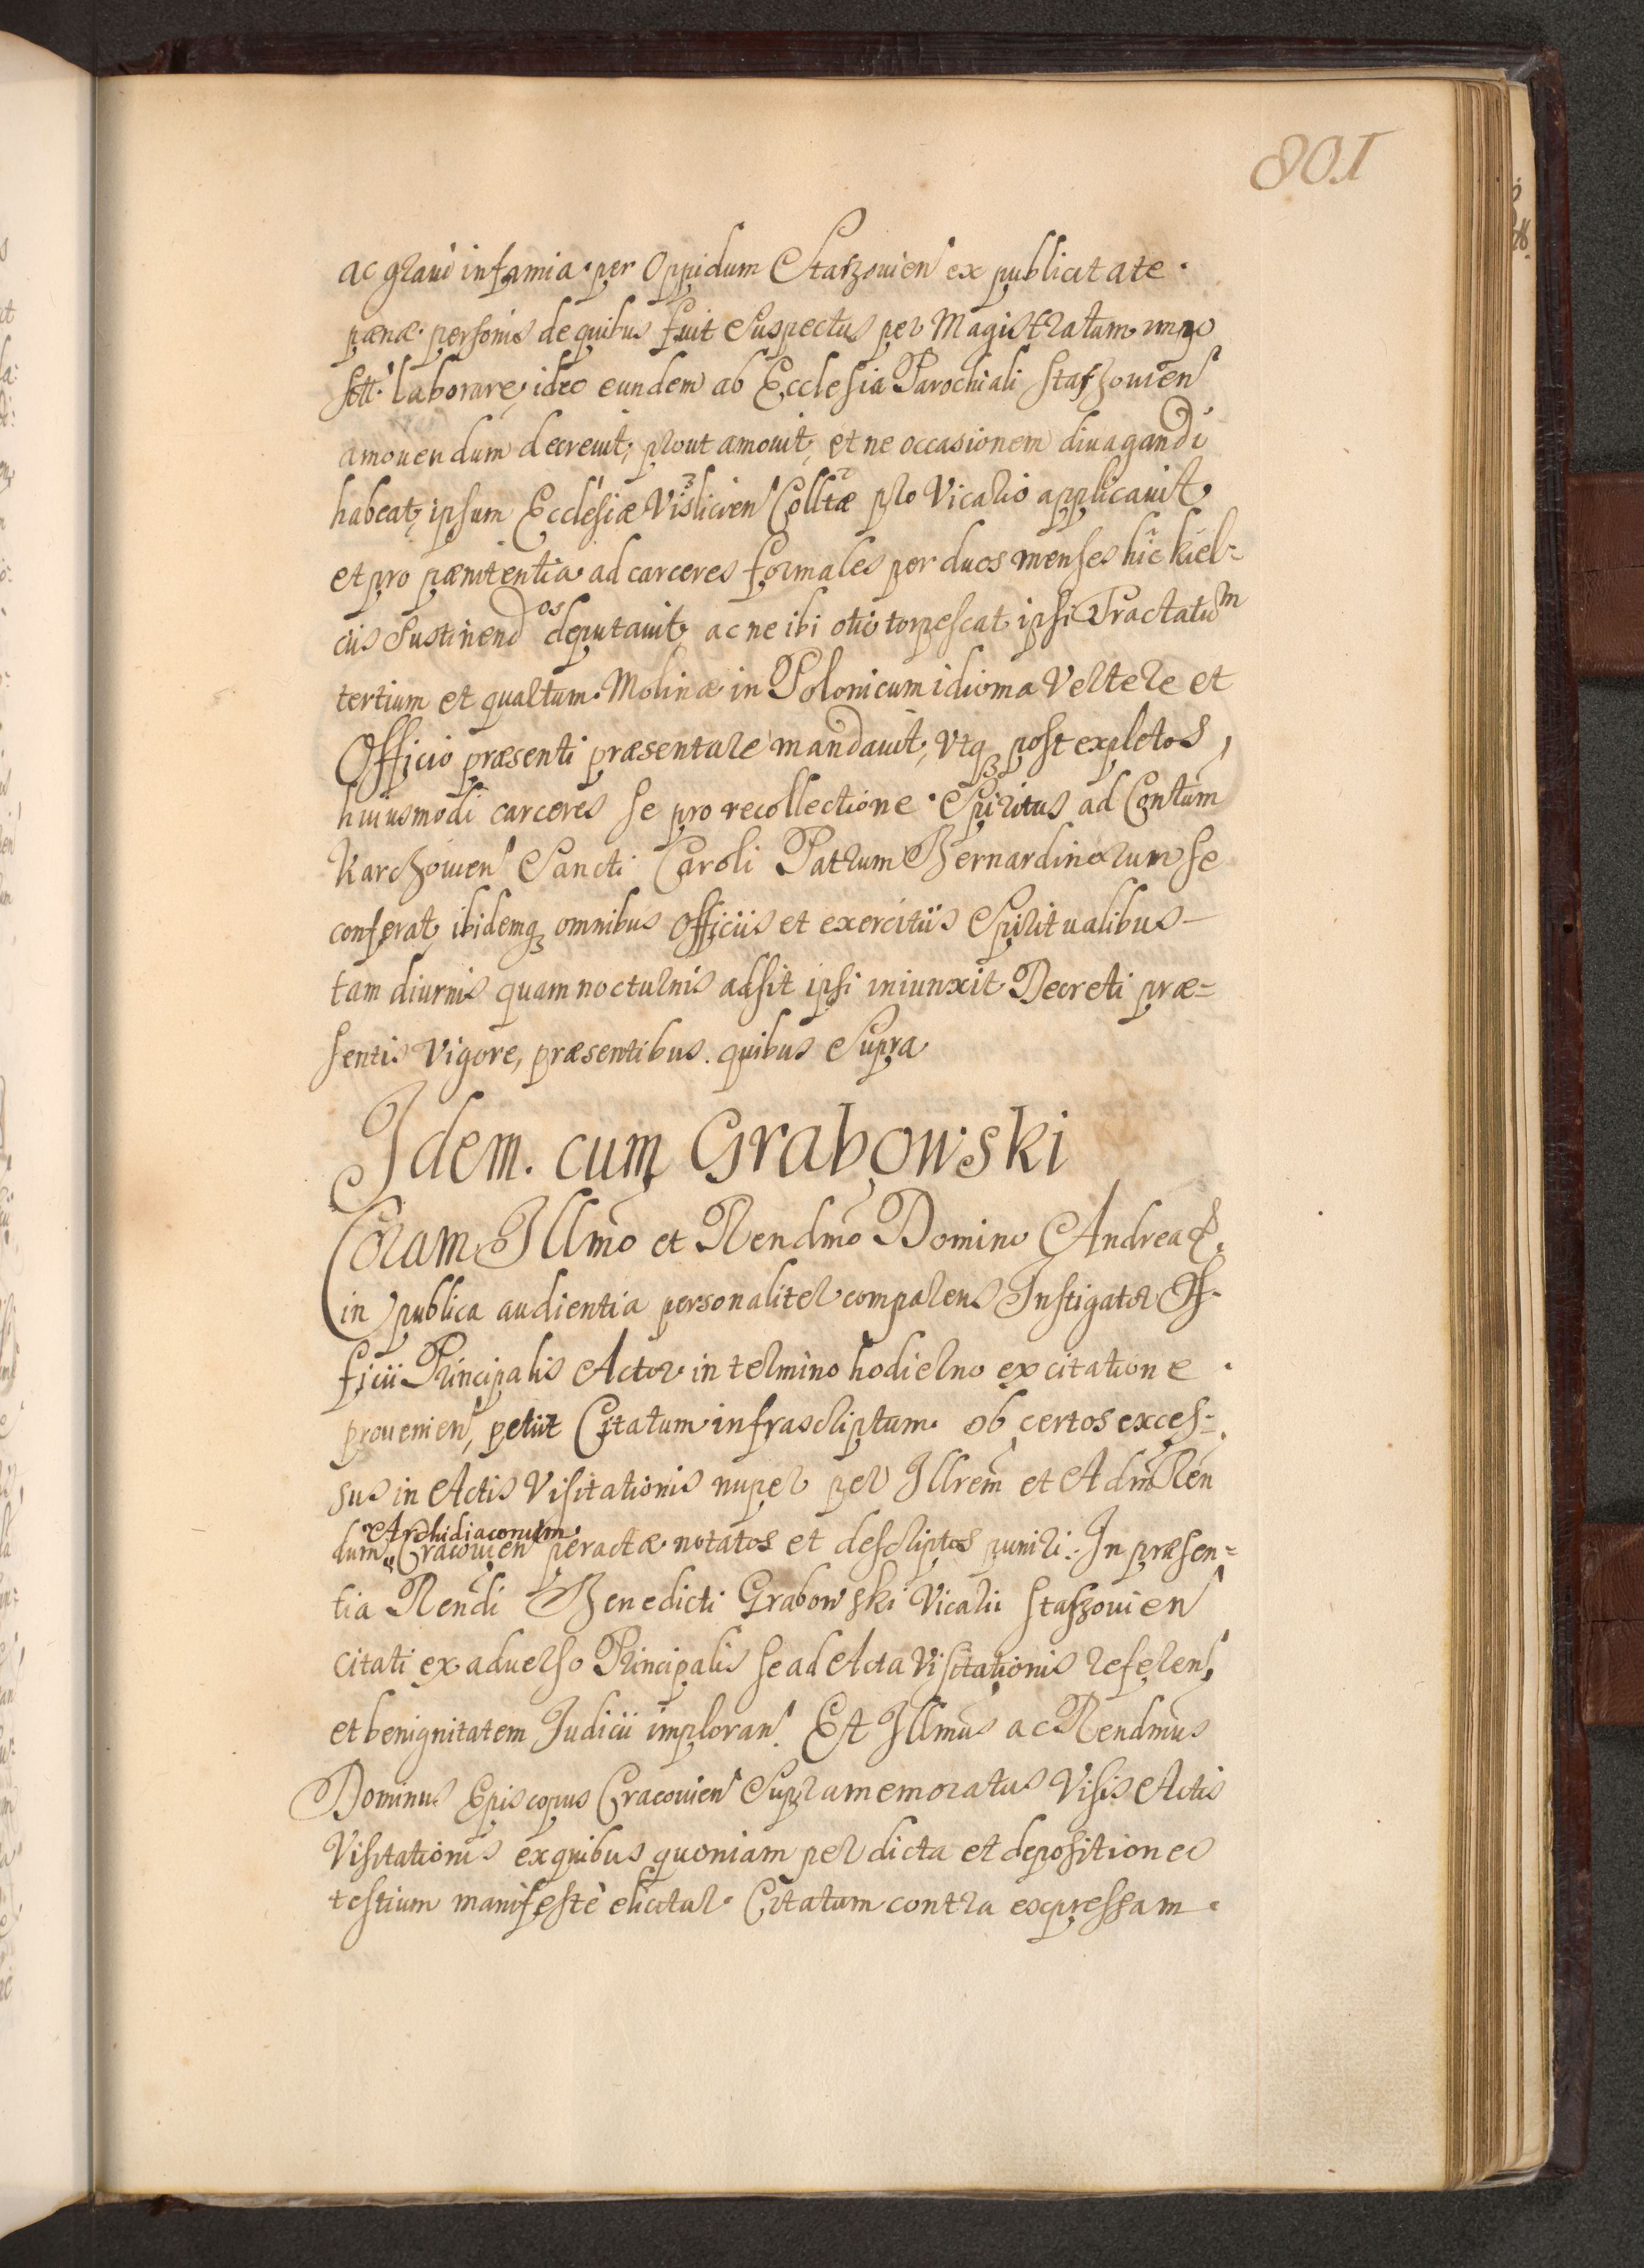 801
ac graui infamia per Oppidum Staszouien ex publicatate
pænæ personis de quibus fuit Suspectus per Magistratum impo
sitæ laborare, ideo eundem ab Ecclesia Parochiali Staszouien
amouendum decreuit, prout amouit, et ne occasionem diuagandi
habeat, ipsum Ecclesiæ Vislicien Colltæ pro Vicario applicauit
et pro pænitentia ad carceres formales per duos menses hic Kiel-
ciis Sustinendos deputauit ac ne ibi otio torpescat ipsi Tractatum
tertium et quartum Molinæ in Polonicum idioma Vertere et
Officio præsenti præsentare mandauit, Vtq3 post expletos,
huiusmodi carceres se pro recollectione Spiritus ad Contum
Karczouien Sancti Caroli Patrum Bernardinorum se
conferat, ibidemq3 omnibus Officiis et exercitiis Spiritualibus
tam diurnis quam nocturnis adsit ipsi iniunxit Decreti præ=
sentis Vigore, præsentibus quibus Supra
Idem cum Grabowski
Coram Illmo et Rendmo Domino Andrea &.
in publica audientia personaliter comparens Instigator Of-
ficii Principalis Actor in termino hodierno ex citatione
prouenien, petiit Citatum infrascriptum ob certos exces=
sus in Actis Visitationis nuper per Illrem et Adm Ren
Archidiaconum
dum Cracouien peractæ notatos et descriptos puniri. In præsen=
tia Rendi Benedicti Grabowski Vicarii Staszouien
citati ex aduerso Principalis se ad Acta Visitationis referen,
et benignitatem Iudicii imploran. Et Illmus ac Rendmus
Dominus Episcopus Cracouien Supramemoratus Visis Actis
Visitationis ex quibus quoniam per dicta et depositiones
testium manifestè elicitur Citatum contra expressam